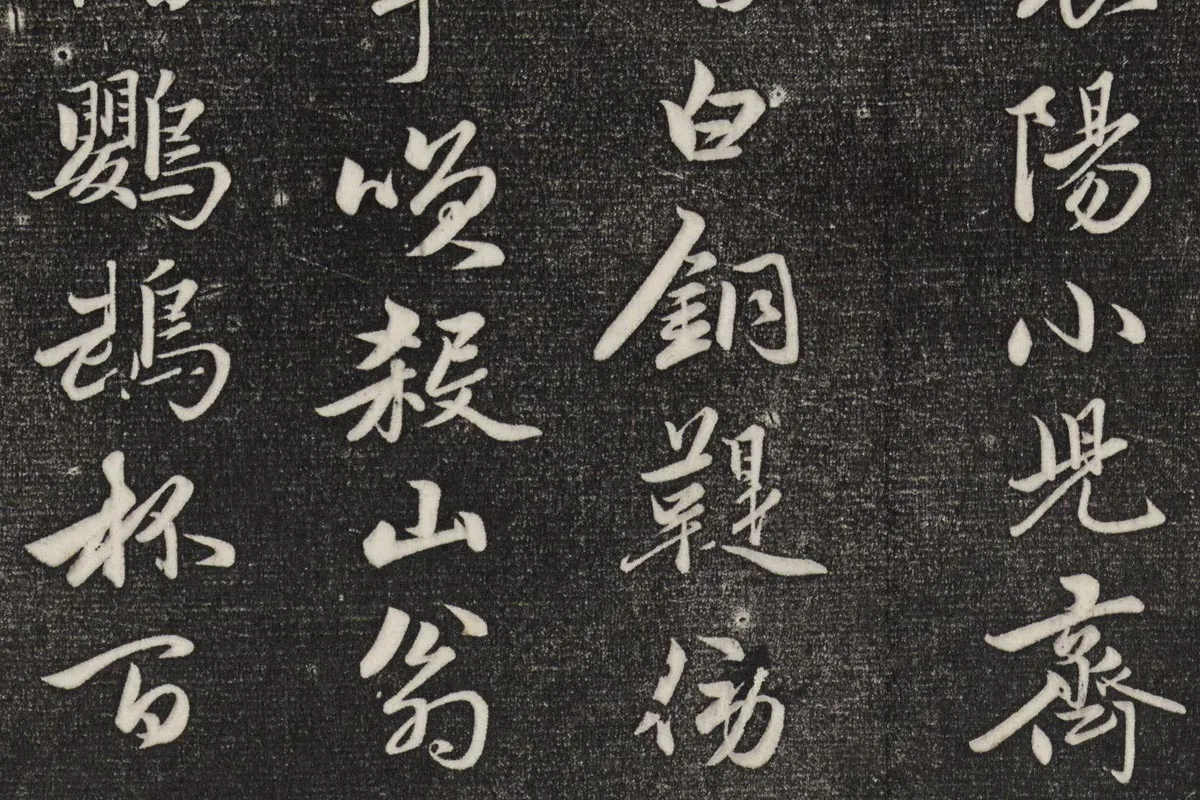 陽小兒齊
白銅鞮傍
咲殺山翁
鸚鵡杯百